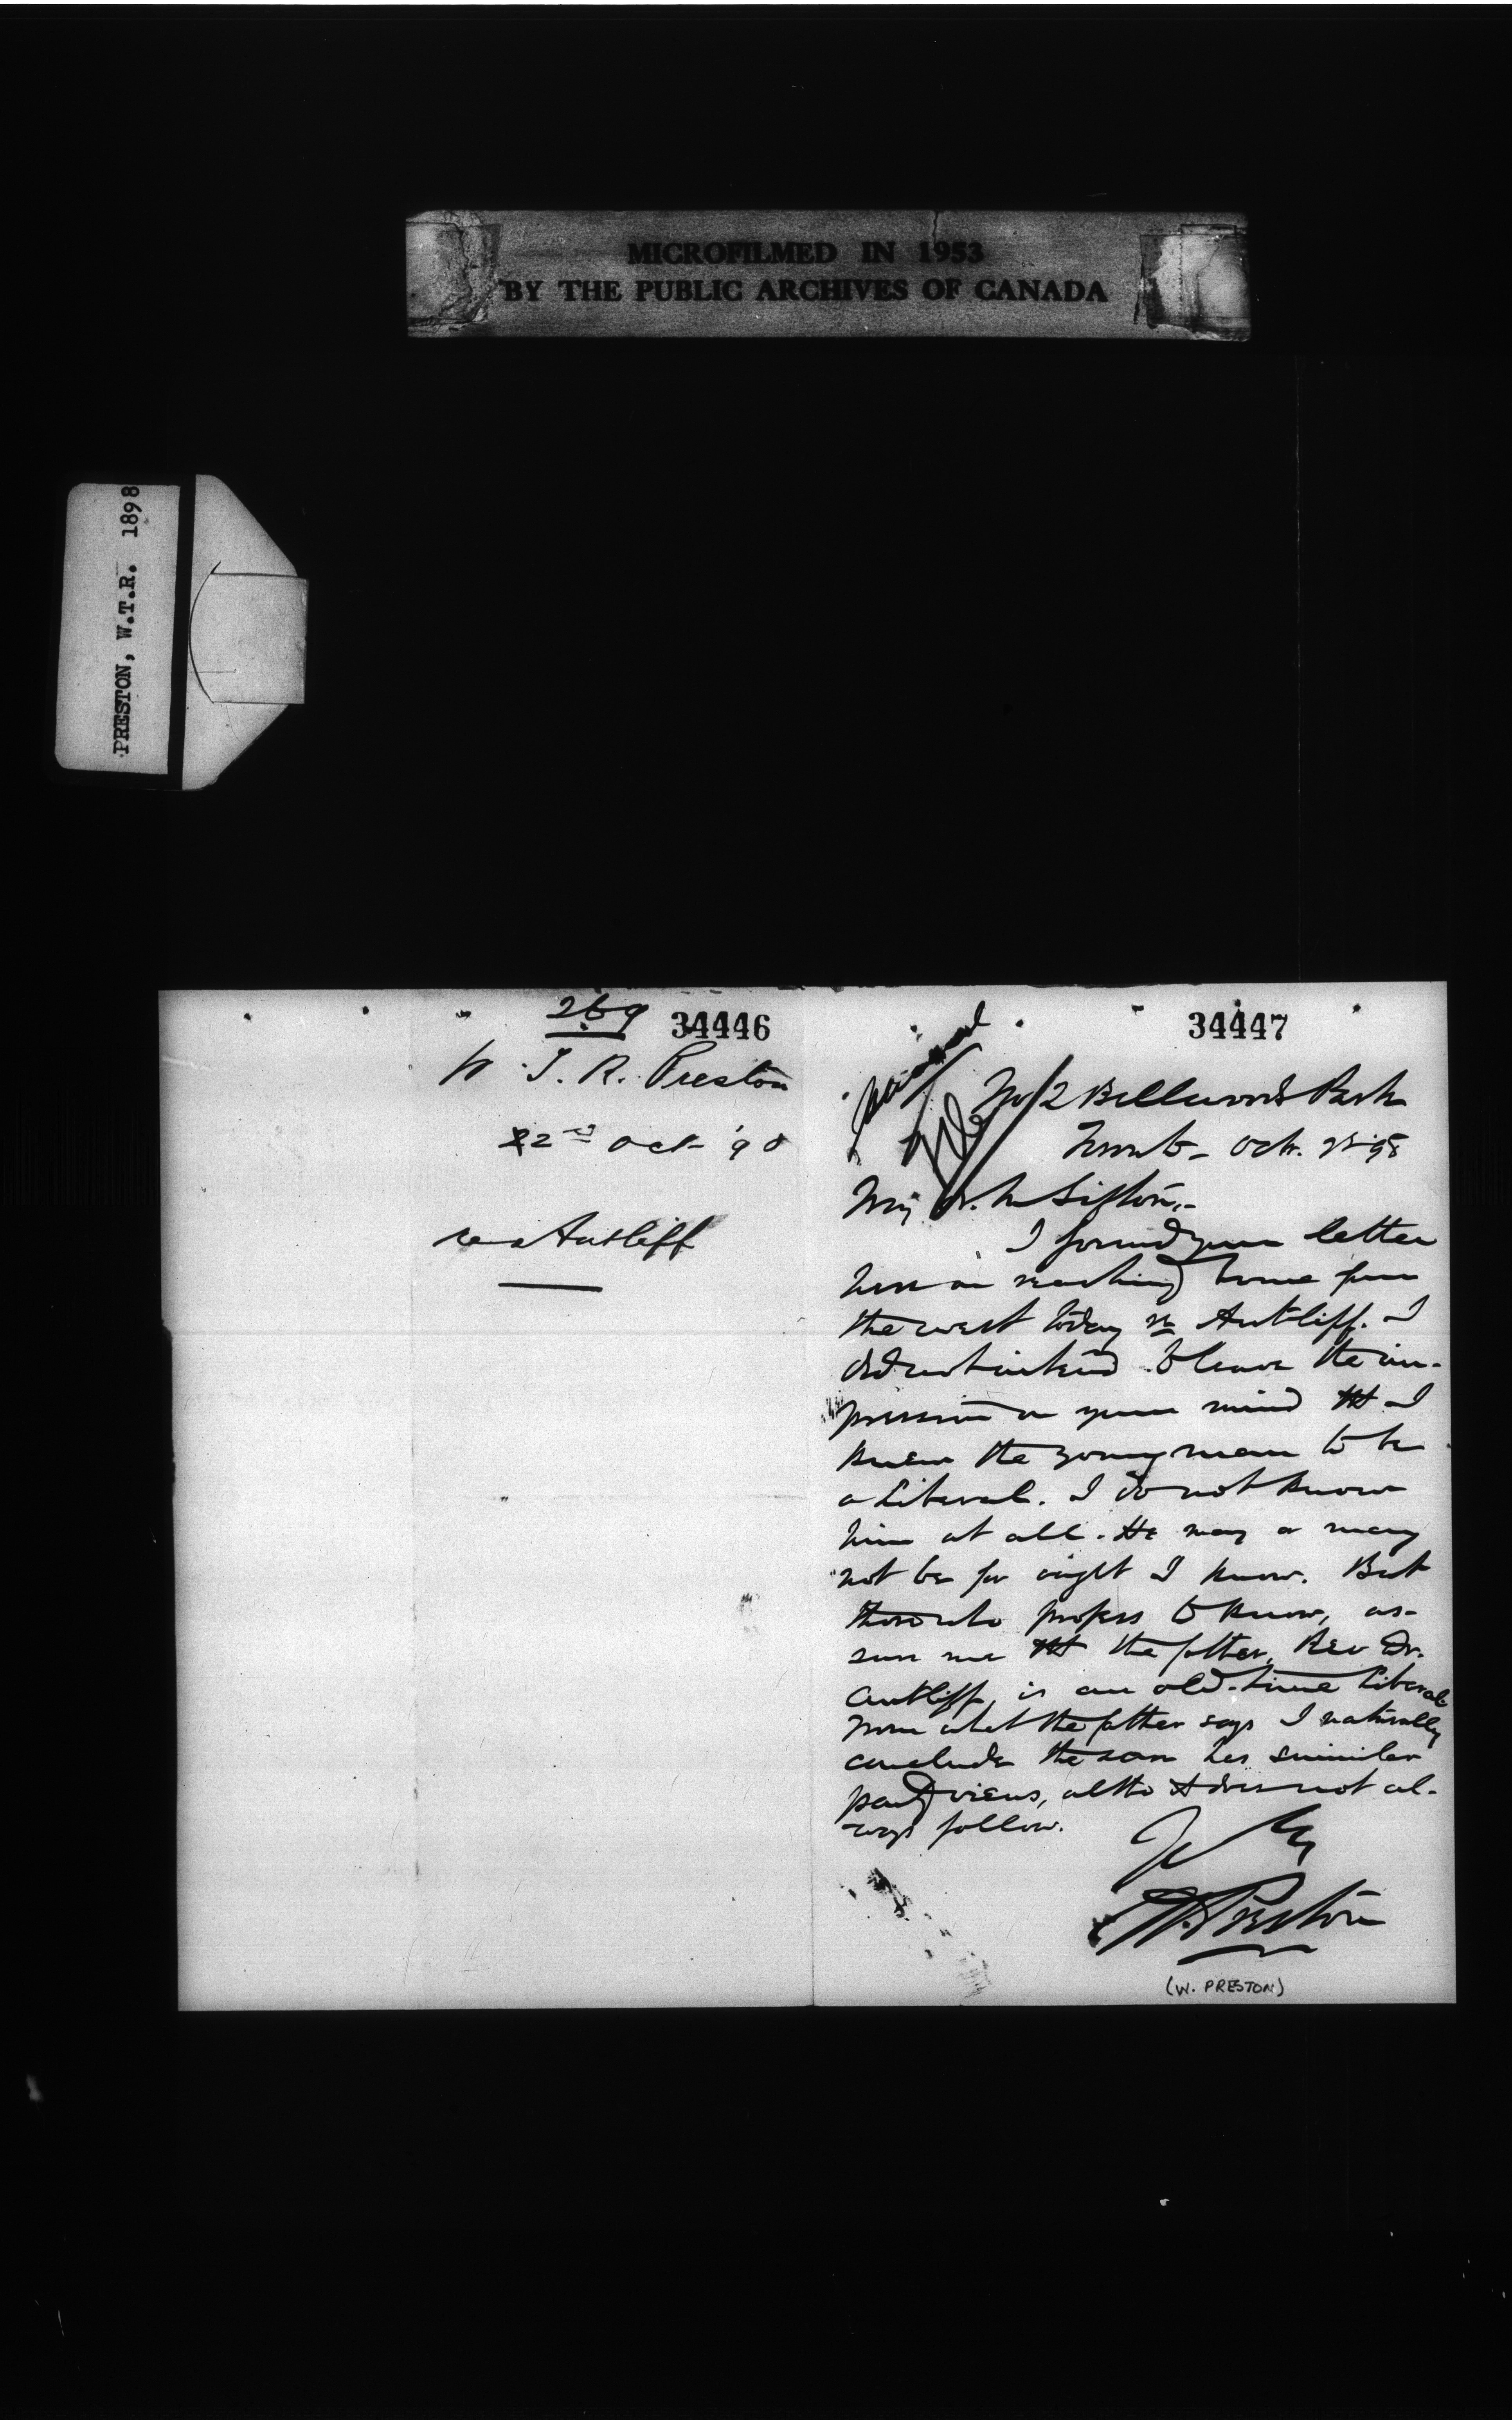 MICROFILMED IN 1953
BY THE PUBLIC ARCHIVES OF CANADA
PRESTON, W.T.R. 1898
269 34446
W. T. R. Preston
22nd Oct '98
re Antliff
34447
Personal
File
No 2 Bellwoods Park
Toronto - Oct. 98
My dr. Mr Sifton,-
I found your letter
here on reaching home from
the west today re Antliff. I
did not intend to leave the im-
pression on your mind tht I
knew the young man to be
a Liberal. I do not know
him at all. He may or may
not be for aught I know. But
those who profess to know, as-
sure me tht the father, Rev Dr.
Antliff, is an old-time Liberal
From what the father says I naturally
conclude the son has similar
party views, altho it does not al-
ways follow.
W. Preston
(W. PRESTON)